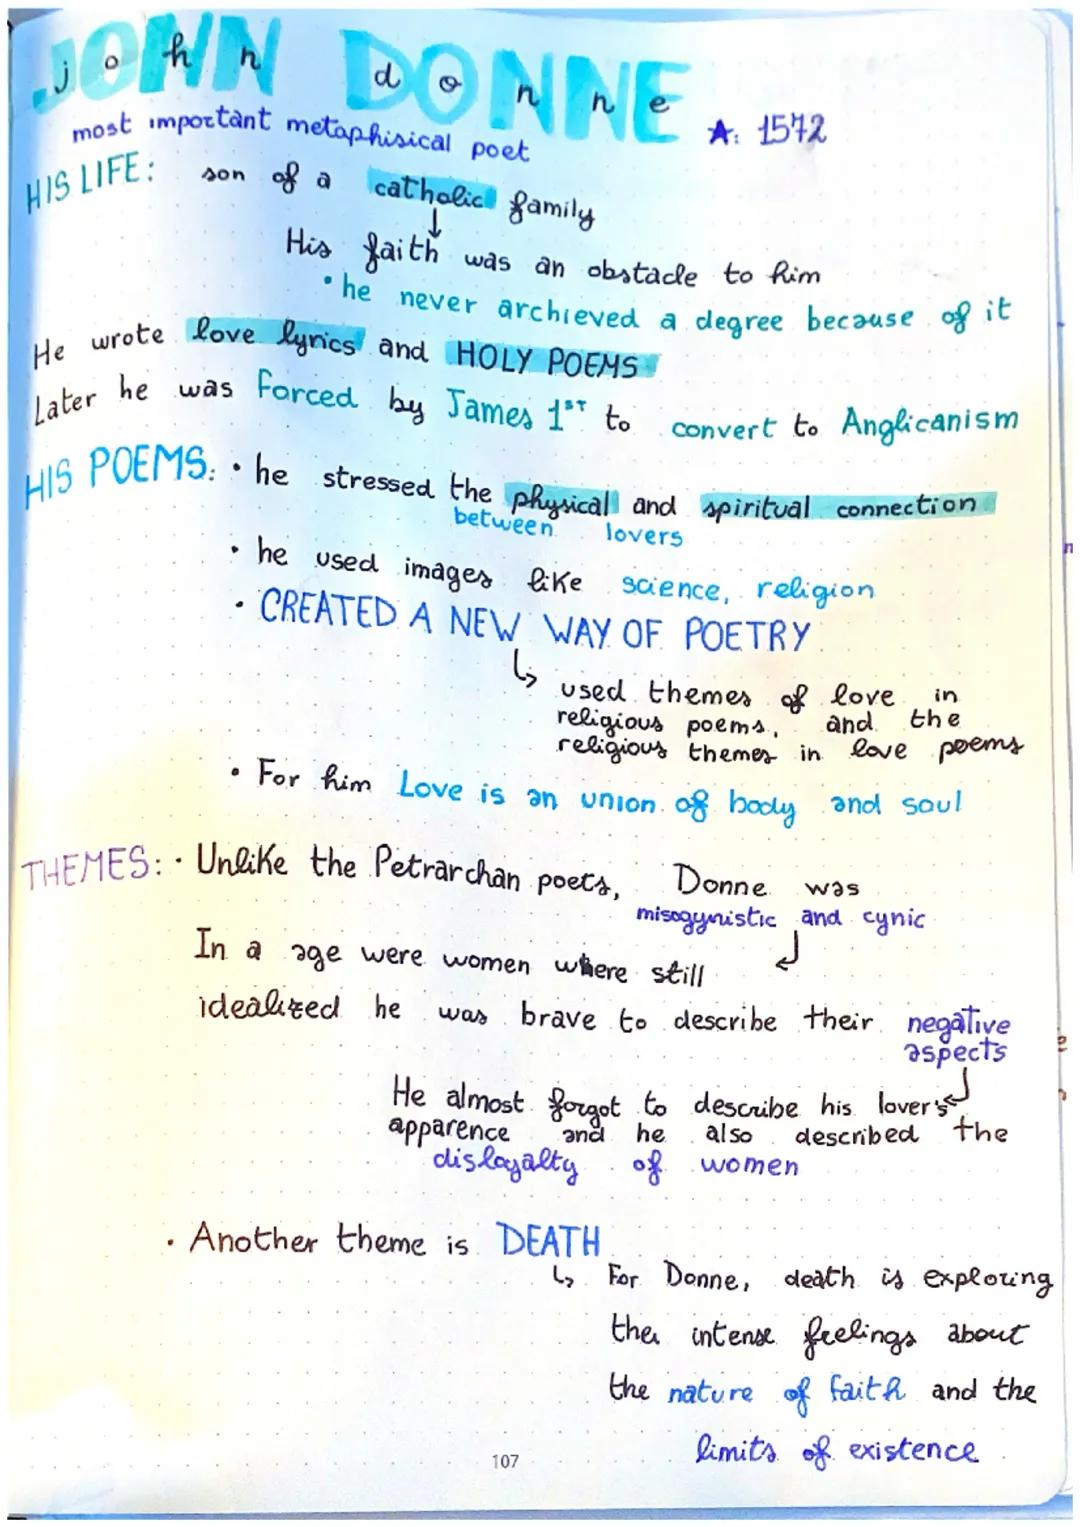 JOHN DONNE
john donne
★: 1572
most important metaphisical poet
HIS LIFE: son of a catholic family
↓
His faith was an obstacle to him
• he never archieved a degree because of it
He wrote love lyrics and HOLY POEMS
Later he was forced by James 1ST to convert to Anglicanism
HIS POEMS: • he stressed the physical and spiritual connection
between lovers
• he used images like science, religion
• CREATED A NEW WAY OF POETRY
↳ used themes of love in
religious poems, and the
religious themes in love poems
• For him Love is an union of body and soul
THEMES: • Unlike the Petrarchan poets, Donne was
misogynistic and cynic
In a age were women where still
idealized he was brave to describe their negative
aspects
He almost forgot to describe his lover's
apparence and he also described the
disloyalty of women
• Another theme is DEATH
↳ For Donne, death is exploring
the intense feelings about
the nature of faith and the
limits of existence
107